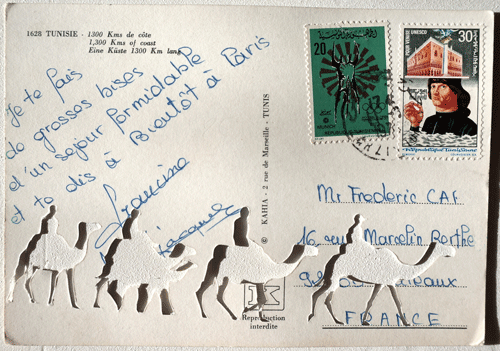 1628 TUNISIE - 1300 Kms de côte
1,300 Kms of coast
Eine Küste 1300 Km lang
Je te fais
de grosses bises
d'un séjour formidable
et te dis à Bientôt à Paris
Francine
Jacques
© KAHIA - 2 rue de Marseille - TUNIS
Reproduction
interdite
20
30
UNESCO
République Tunisienne
Mr Frederic CAF
16, rue Marcelin Berthe
FRANCE